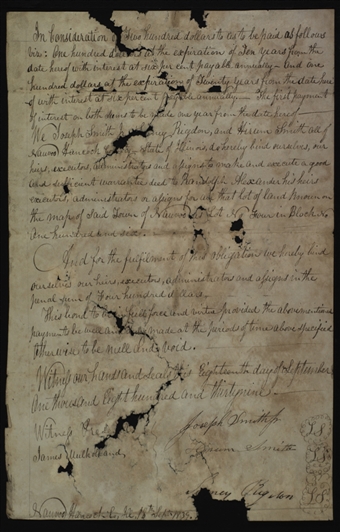 In Consideration of Two hundred dollars to us to be paid as follows
viz: One hundred dollars at the expiration of Ten Years from the
date hereof with interest at six per cent payable annually - And one
hundred dollars at the expiration of Twenty Years from the date here
of with interest at six per cent payable annually - The first payment
of interest on both sums to be made one year from the date hereof
We Joseph Smith Sidney Rigdon, and Hiram Smith all of
Hancock State of Illinois, do hereby bind ourselves, our
heirs, executors, administrators and assigns to make and execute a good
and sufficient warrantee deed to Randolph Alexander his heirs
executors, administrators or assigns for all that lot of Land known on
the map of said Town of Nauvoo as Lot No Four in Block No
One hundred and six.
And for the fulfilment of this obligation we hereby bind
ourselves our heirs, executors, administrators and assigns in the
penal sum of Four hundred dollars.
This bond to be in force and virtue provided the abovementioned
payments be well and made at the periods of time above specified
Otherwise to be null and void.
Witness our hands and seals this Eighteenth day of September
One thousand Eight hundred and thirty nine
Witness
Joseph Smith Jr
James Mulholland
Hiram Smith
Sidney Rigdon
Nauvoo 18th Sept 1839